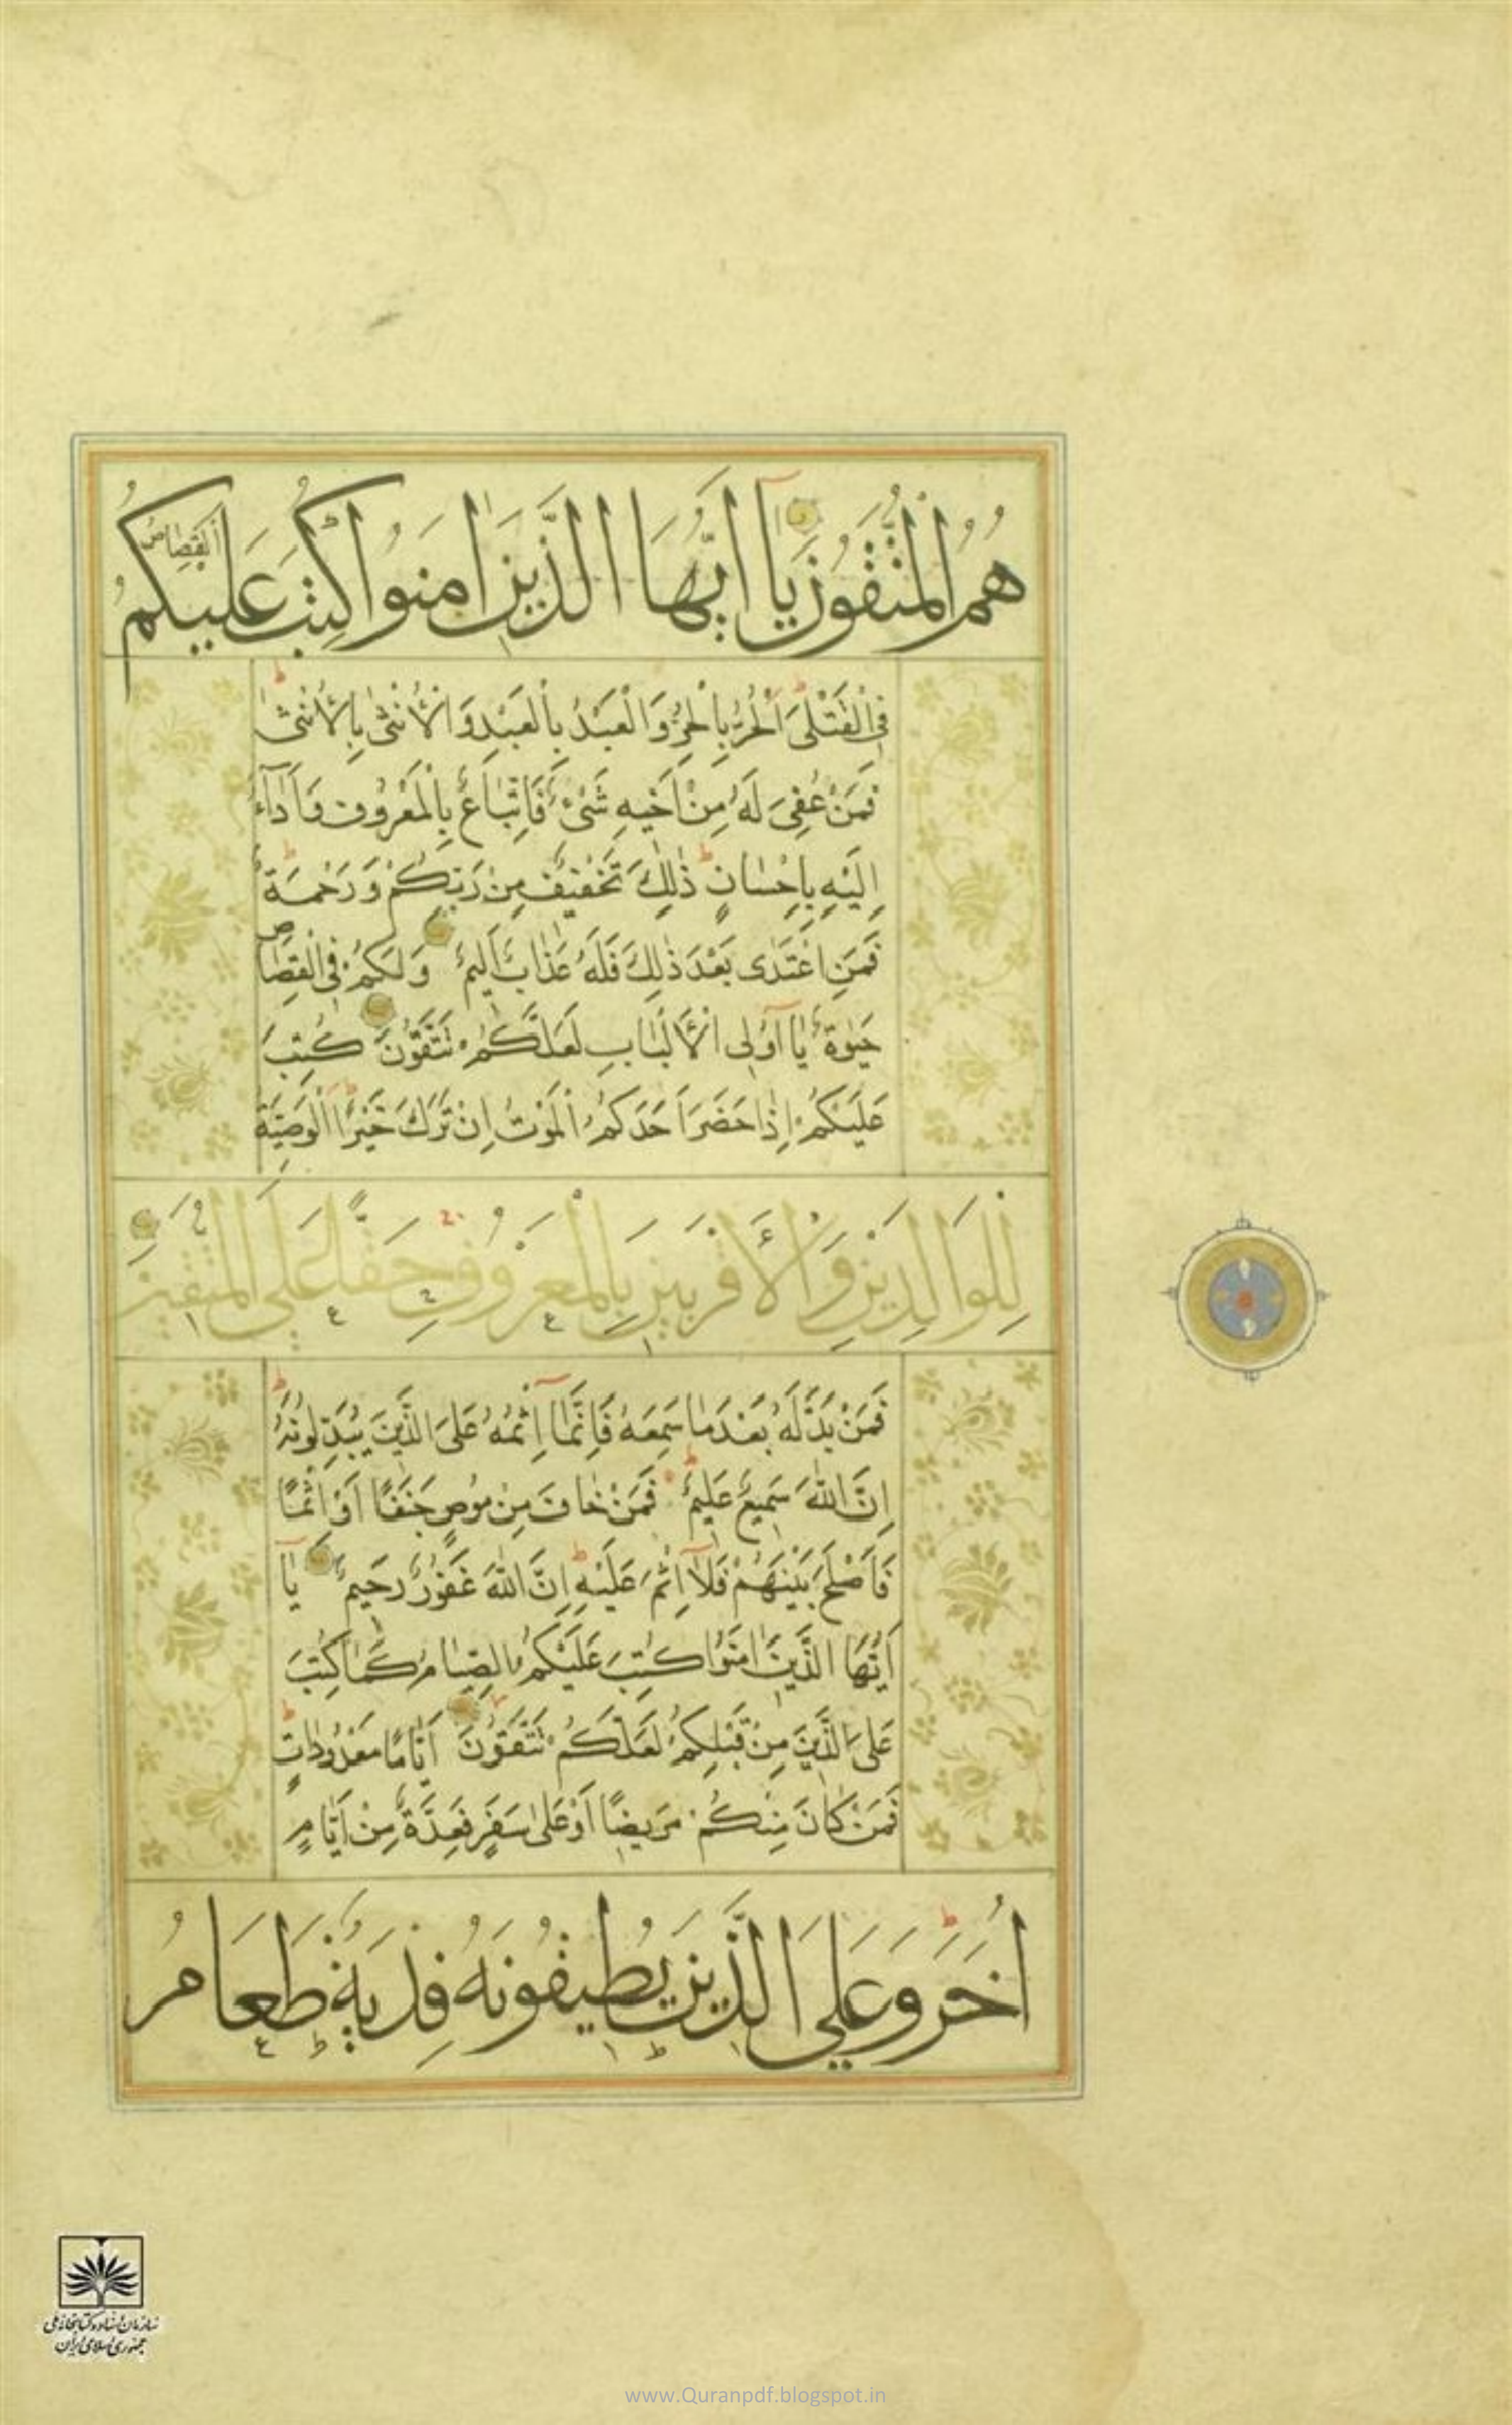 هُمُ الْمُتَّقُونَ يَآ اَيُّهَا الَّذِينَ اٰمَنُوا كُتِبَ عَلَيْكُمُ الْقِصَاصُ
فِي الْقَتْلَى اَلْحُرُّ بِالْحُرِّ وَالْعَبْدُ بِالْعَبْدِ وَالْاُنْثٰى بِالْاُنْثٰى
فَمَنْ عُفِيَ لَهُ مِنْ اَخِيهِ شَيْءٌ فَاتِّبَاعٌ بِالْمَعْرُوفِ وَاَدَآءٌ
اِلَيْهِ بِاِحْسَانٍ ذٰلِكَ تَخْفِيفٌ مِنْ رَبِّكُمْ وَرَحْمَةٌ
فَمَنِ اعْتَدٰى بَعْدَ ذٰلِكَ فَلَهُ عَذَابٌ اَلِيمٌ وَلَكُمْ فِي الْقِصَاصِ
حَيٰوةٌ يَآ اُولِي الْاَلْبَابِ لَعَلَّكُمْ تَتَّقُونَ كُتِبَ
عَلَيْكُمْ اِذَا حَضَرَ اَحَدَكُمُ الْمَوْتُ اِنْ تَرَكَ خَيْرًا الْوَصِيَّةُ
لِلْوَالِدَيْنِ وَالْاَقْرَبِينَ بِالْمَعْرُوفِ حَقًّا عَلَى الْمُتَّقِينَ
فَمَنْ بَدَّلَهُ بَعْدَ مَا سَمِعَهُ فَاِنَّمَآ اِثْمُهُ عَلَى الَّذِينَ يُبَدِّلُونَهُ
اِنَّ اللهَ سَمِيعٌ عَلِيمٌ فَمَنْ خَافَ مِنْ مُوصٍ جَنَفًا اَوْ اِثْمًا
فَاَصْلَحَ بَيْنَهُمْ فَلَآ اِثْمَ عَلَيْهِ اِنَّ اللهَ غَفُورٌ رَحِيمٌ يَآ
اَيُّهَا الَّذِينَ اٰمَنُوا كُتِبَ عَلَيْكُمُ الصِّيَامُ كَمَا كُتِبَ
عَلَى الَّذِينَ مِنْ قَبْلِكُمْ لَعَلَّكُمْ تَتَّقُونَ اَيَّامًا مَعْدُودَاتٍ
فَمَنْ كَانَ مِنْكُمْ مَرِيضًا اَوْ عَلٰى سَفَرٍ فَعِدَّةٌ مِنْ اَيَّامٍ
اُخَرَ وَعَلَى الَّذِينَ يُطِيقُونَهُ فِدْيَةٌ طَعَامُ
سازمان اسناد و کتابخانه ملی
جمهوری اسلامی ایران
www.Quranpdf.blogspot.in